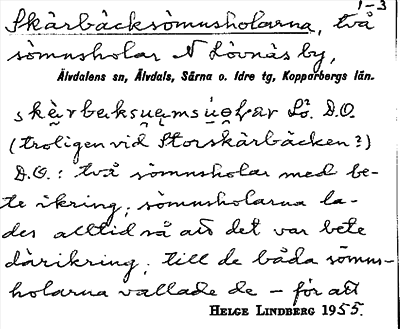 1-3
Skärbäckssömnsholarna, två
sömnsholar N Lövnäs by,
Älvdalens sn, Älvdals, Särna o. Idre tg, Kopparbergs län.
Lö. D.O.
(troligen vid Storskärbäcken?)
D.O.: två sömnsholar med be-
te ikring; sömnsholarna la-
des alltid så att det var bete
därikring; till de båda sömns-
holarna vallade de – för att
HELGE LINDBERG 1955.